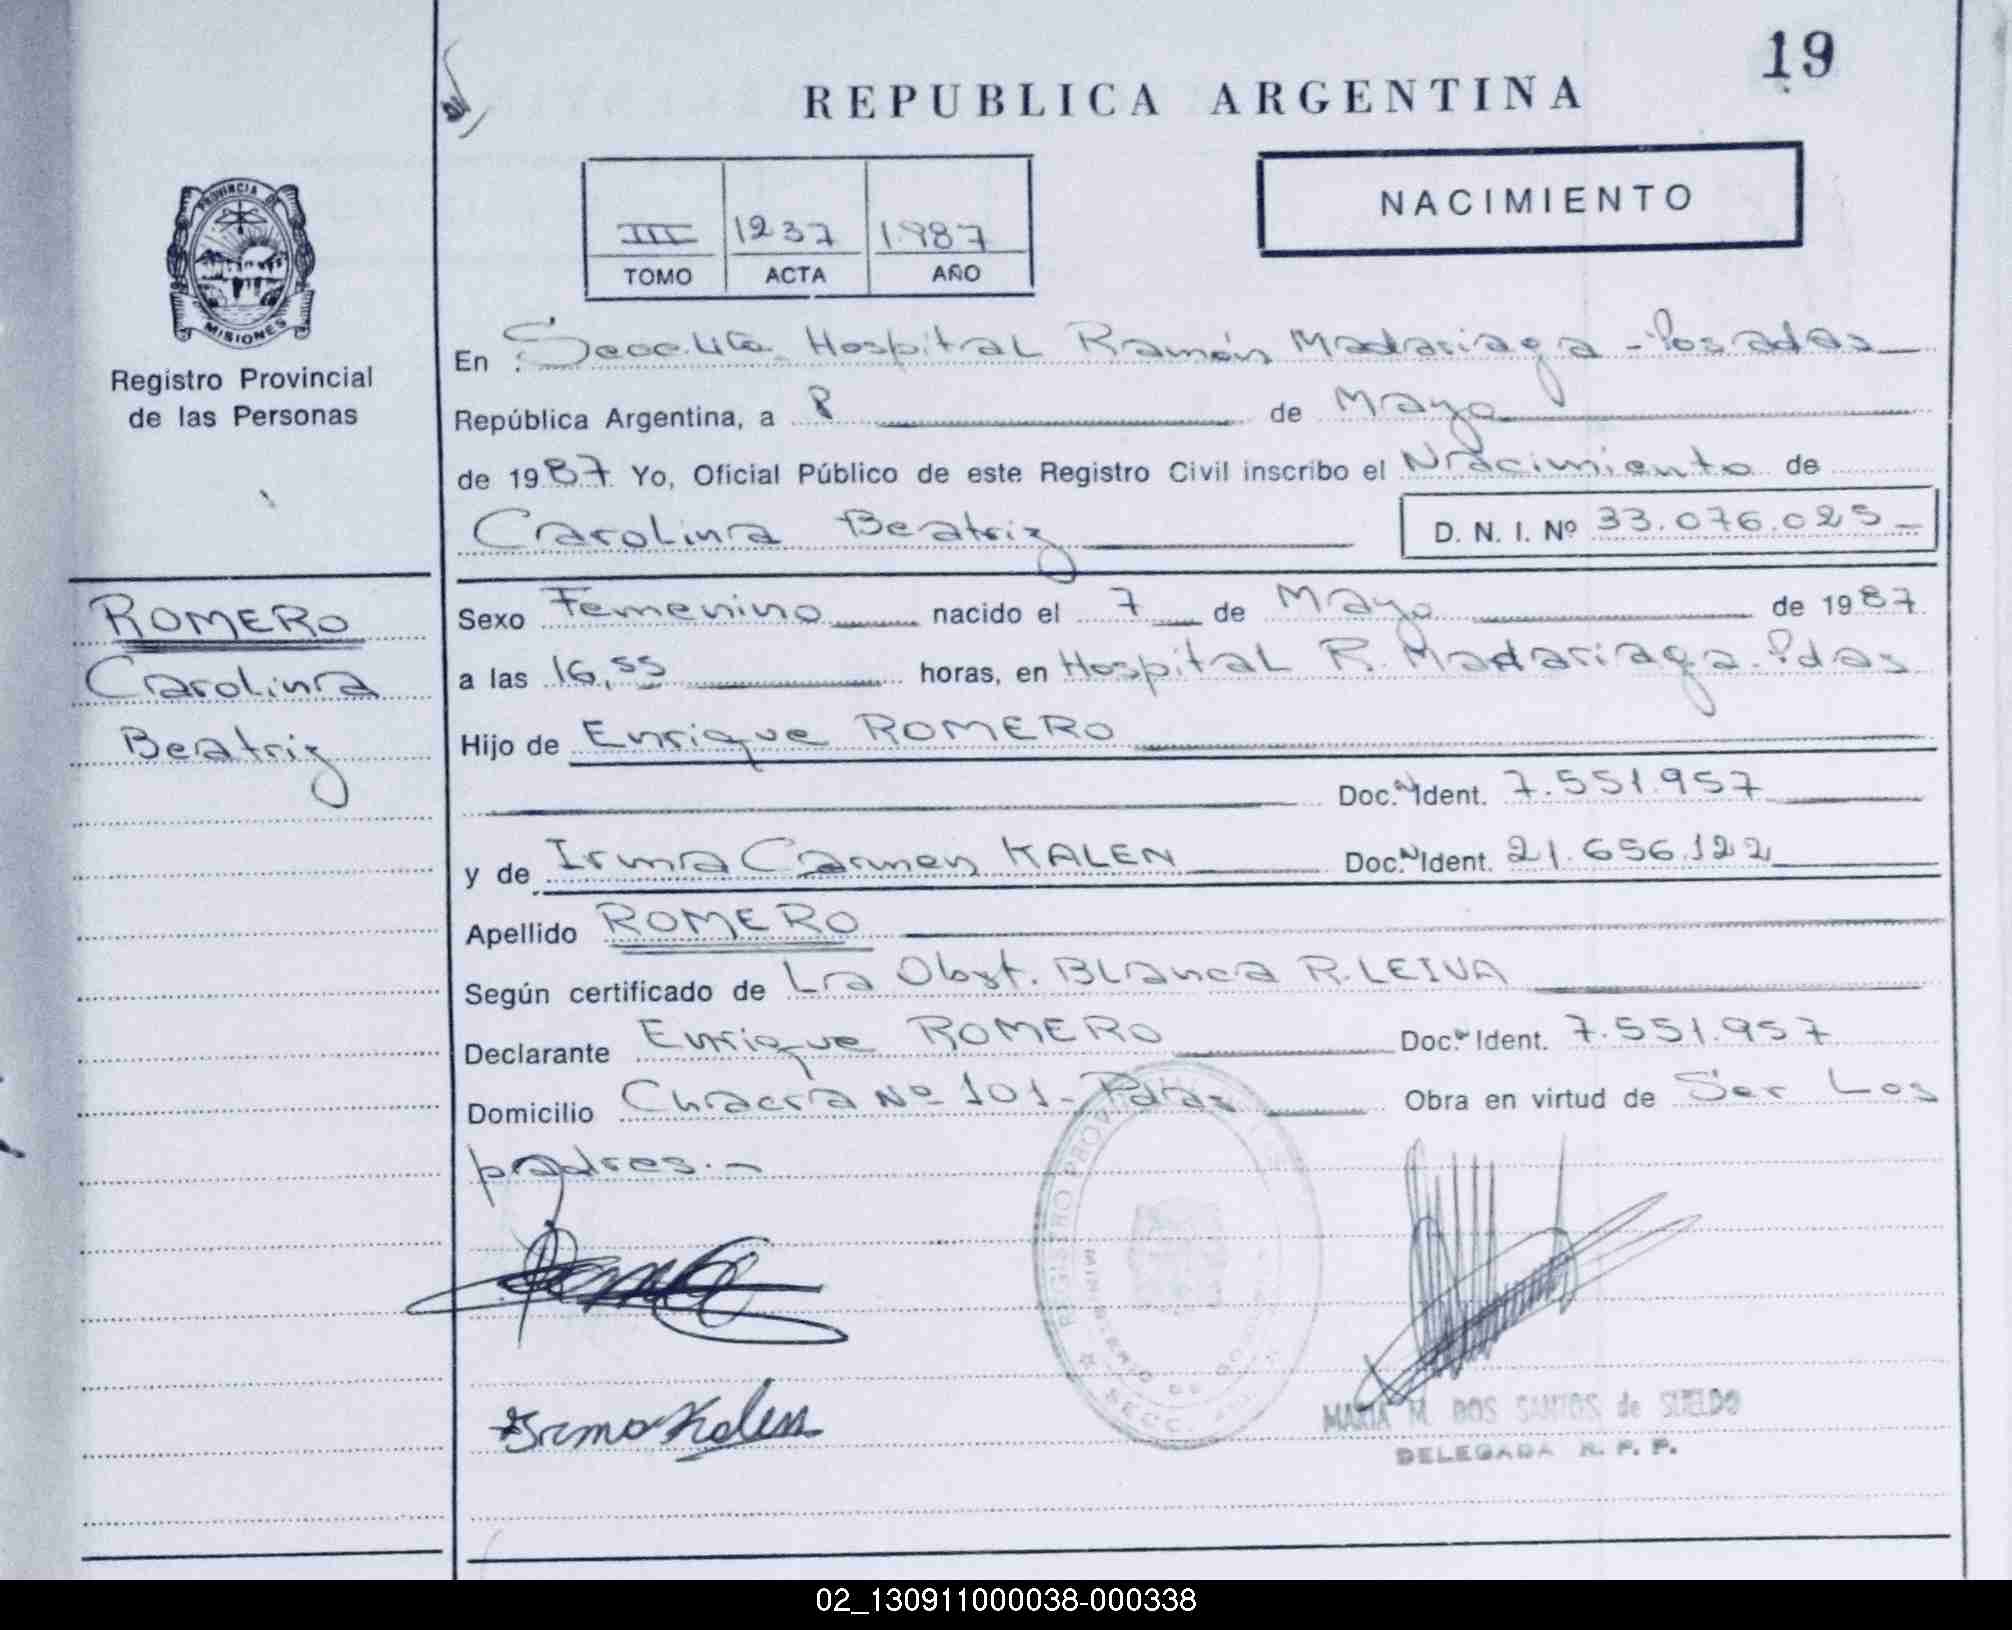 19
REPUBLICA ARGENTINA
NACIMIENTO
III 1237 1987
TOMO ACTA AÑO
PROVINCIA DE
MISIONES
Registro Provincial
de las Personas
En Secc. Hospital Ramón Madariaga - Posadas
República Argentina, a 8 de Mayo
de 1987 Yo, Oficial Público de este Registro Civil inscribo el Nacimiento de
Carolina Beatriz D. N. I. Nº 33.076.025
ROMERO
Carolina
Beatriz
Sexo Femenino nacido el 7 de Mayo de 1987
a las 16,55 horas, en Hospital R. Madariaga. Pdas
Hijo de Enrique ROMERO
Doc. Ident. 7.551.957
y de Irma Carmen KALEN Doc. Ident. 21.656.122
Apellido ROMERO
Según certificado de La Obst. Blanca R. LEIVA
Declarante Enrique ROMERO Doc. Ident. 7.551.957
Domicilio Chacra Nº 101 - Pdas Obra en virtud de Ser Los
padres.-
REGISTRO PROV
SECC.
Irma Kalen
MARIA M. DOS SANTOS de SUELDO
DELEGADA R. P. P.
02_130911000038-000338